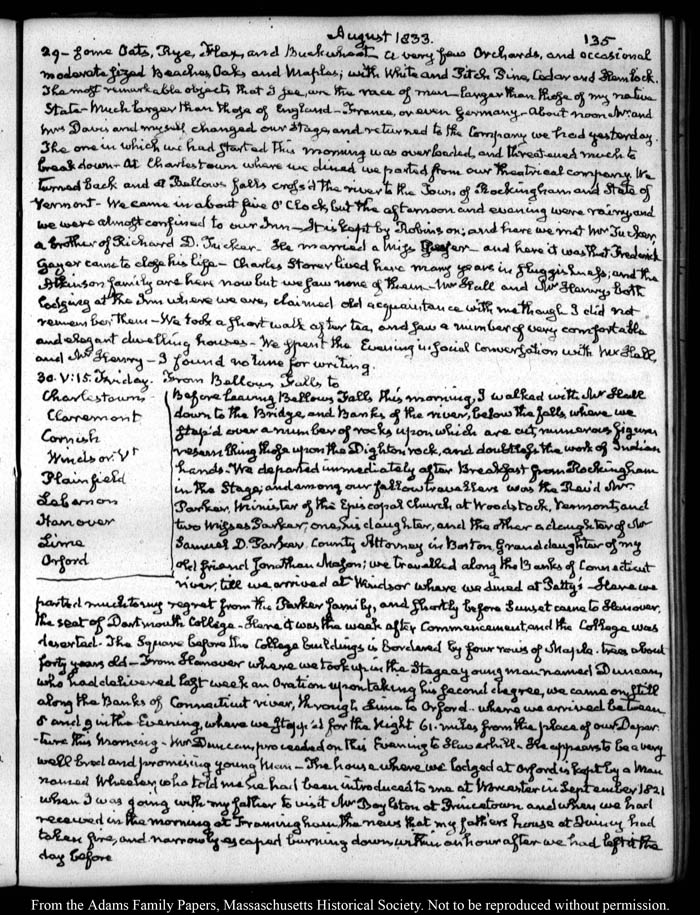 August 1833. 135
29 - some Oats, Rye, Flax, and Buckwheat. A very few Orchards, and occasional
moderate sized Beaches, Oaks and Maples; with White and Pitch Pine, Cedar and Hemlock.
The most remarkable objects that I see, are the race of men - larger than those of my native
State - Much larger than those of England - France, or even Germany. - About noon Mr. and
Mrs Davis and myself changed our Stage, and returned to the Company we had yesterday.
The one in which we had started this morning was overloaded, and threatened much to
break down - At Charlestown where we dined we parted from our theatrical company. We
turned back and at Bellows falls cross'd the river to the Town of Rockingham and State of
Vermont - We came in about five O'Clock, but the afternoon and evening were rainy, and
we were almost confined to our Inn - It is kept by Robinson; and here we met Mr Tucker,
a brother of Richard D. Tucker - He married a Miss Geyer - and here it was that Frederick
Geyer came to close his life - Charles Storer lived here many years in sluggishness; and the
Atkinson family are here now but we saw none of them - Mr Hall and Mr Henry, both
lodging at the Inn where we are, claimed old acquaintance with me though I did not
remember them - We took a short walk after tea, and saw a number of very comfortable
and elegant dwelling houses - We spent the Evening in social Conversation with Mr Hall,
and Mr Henry - I found no time for writing.
30. V:15. Friday. From Bellows Falls to
Charlestown
Claremont
Cornish
Windsor. Vt
Plainfield
Lebanon
Hanover
Lime
Orford
Before leaving Bellows Falls this morning, I walked with Mr Hall
down to the Bridge, and Banks of the river, below the falls, where we
step'd over a number of rocks upon which are cut, numerous figures
resembling those upon the Dighton rock, and doubtless the work of Indian
hands - We departed immediately after Breakfast from Rockingham
in the Stage; and among our fellow travellers was the Rev'd Mr.
Parker, Minister of the Episcopal Church at Woodstock, Vermont, and
two Misses Parker; one, his daughter, and the other a daughter of Mr
Samuel D. Parker, County Attorney in Boston, Granddaughter of my
old friend Jonathan Mason; we travelled along the Banks of Connecticut
river, till we arrived at Windsor where we dined at Pettys - Here we
parted much to my regret from the Parker family, and shortly before Sunset came to Hanover,
the seat of Dartmouth College - Here it was the week after Commencement, and the College was
deserted - The Square before the College buildings is bordered by four rows of Maple-trees about
forty years old - From Hanover where we took up in the Stage a young man named Duncan,
who had delivered last week an Oration upon taking his second degree, we came on, still
along the Banks of Connecticut river, through Lime to Orford - where we arrived between
8 and 9 in the Evening, where we stopp'd for the Night 61. miles from the place of our Depar
-ture this Morning - Mr Duncan, proceeded on this Evening to Haverhill - He appears to be a very
well bred and promising young Man - The house where we lodged at Orford is kept by a Man
named Wheeler, who told me he had been introduced to me at Worcester in September 1821
when I was going with my father to visit Mr Boylston at Princetown and when we had
received in the morning at Framingham, the news that my father's house at Quincy had
taken fire, and narrowly escaped burning down, within an hour after we had left it the
day before
From the Adams Family Papers, Massachusetts Historical Society. Not to be reproduced without permission.